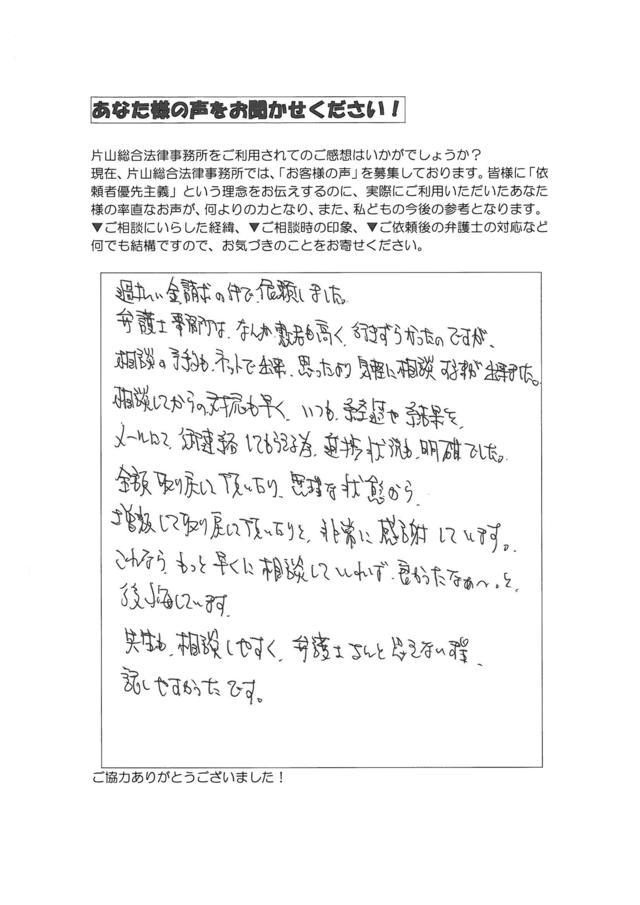 あなた様の声をお聞かせください！
片山総合法律事務所をご利用されてのご感想はいかがでしょうか？
現在、片山総合法律事務所では、「お客様の声」を募集しております。皆様に「依
頼者優先主義」という理念をお伝えするのに、実際にご利用いただいたあなた
様の率直なお声が、何よりの力となり、また、私どもの今後の参考となります。
▼ご相談にいらした経緯、▼ご相談時の印象、▼ご依頼後の弁護士の対応など
何でも結構ですので、お気づきのことをお寄せください。
過払い金請求の件で依頼しました。
弁護士事務所は、なんか敷居も高く、行きずらかったのですが、
相談の予約も、ネットで出来、思ったより気軽に相談する事が出来ました。
相談してからの対応も早く、いつも、経過や結果を、
メールにて、御連絡してもらえる為、進捗状況も、明確でした。
全額取り戻して頂いたり、な状態から、
増額して取り戻して頂いたりと、非常に感謝しています。
これなら、もっと早くに相談していれば、良かったなぁ〜。と、
後悔しています。
先生も、相談しやすく、弁護士さんと思えない程、
話しやすかったです。
ご協力ありがとうございました！